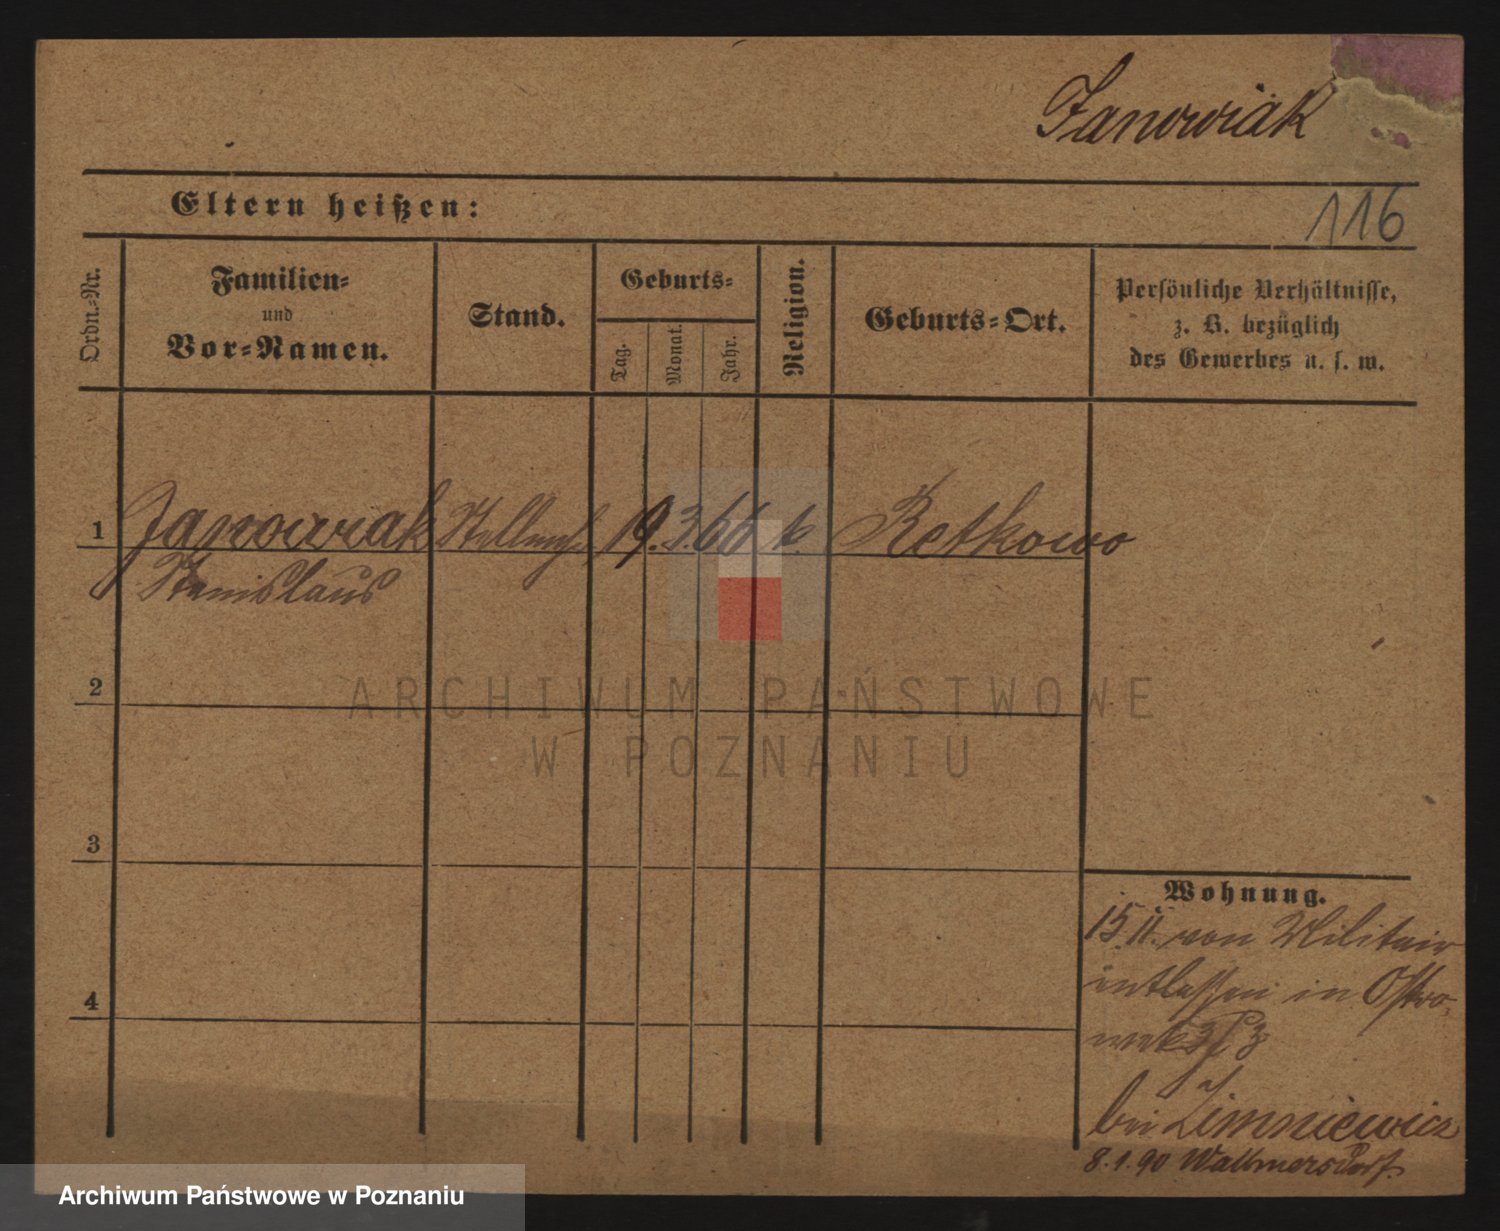 Janowiak
Eltern heißen:
116
Ordn.-Nr.
Familien-
und
Vor-Namen.
Stand.
Geburts-
Tag.
Monat.
Jahr.
Religion.
Geburts-Ort.
Persönliche Verhältnisse,
z. B. bezüglich
des Gewerbes u. s. w.
1 Janowiak Stellmch. 19. 3. 66 k. Retkowo
Stanislaus
2
ARCHIWUM PAŃSTWOWE
W POZNANIU
3
Wohnung.
15. 11. von Militair
entlassen in Ostro-
4
bei Zimniewicz
8. 1. 90 Wallmersdorf.
Archiwum Państwowe w Poznaniu